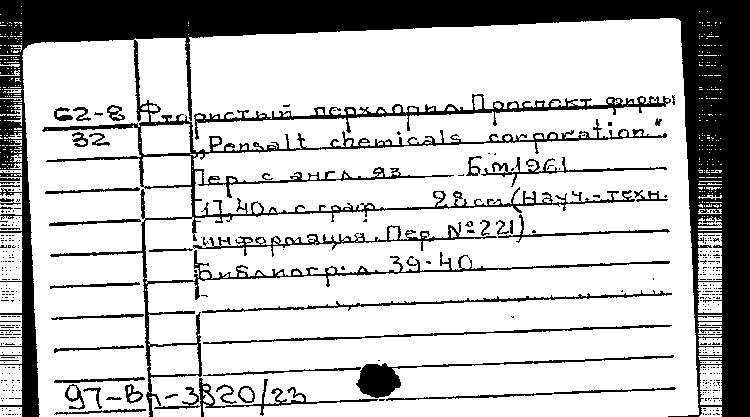 62-8 Фтористый перхлорил. Проспект фирмы
32 „Pensalt chemicals corporation".
Пер. с англ. яз. Б.м., 1961
[1], 40 л. с граф. 28 cm (Науч.-техн.
информация. Пер. №221).
Библиогр: л. 39-40.
97-Вл-3820/23